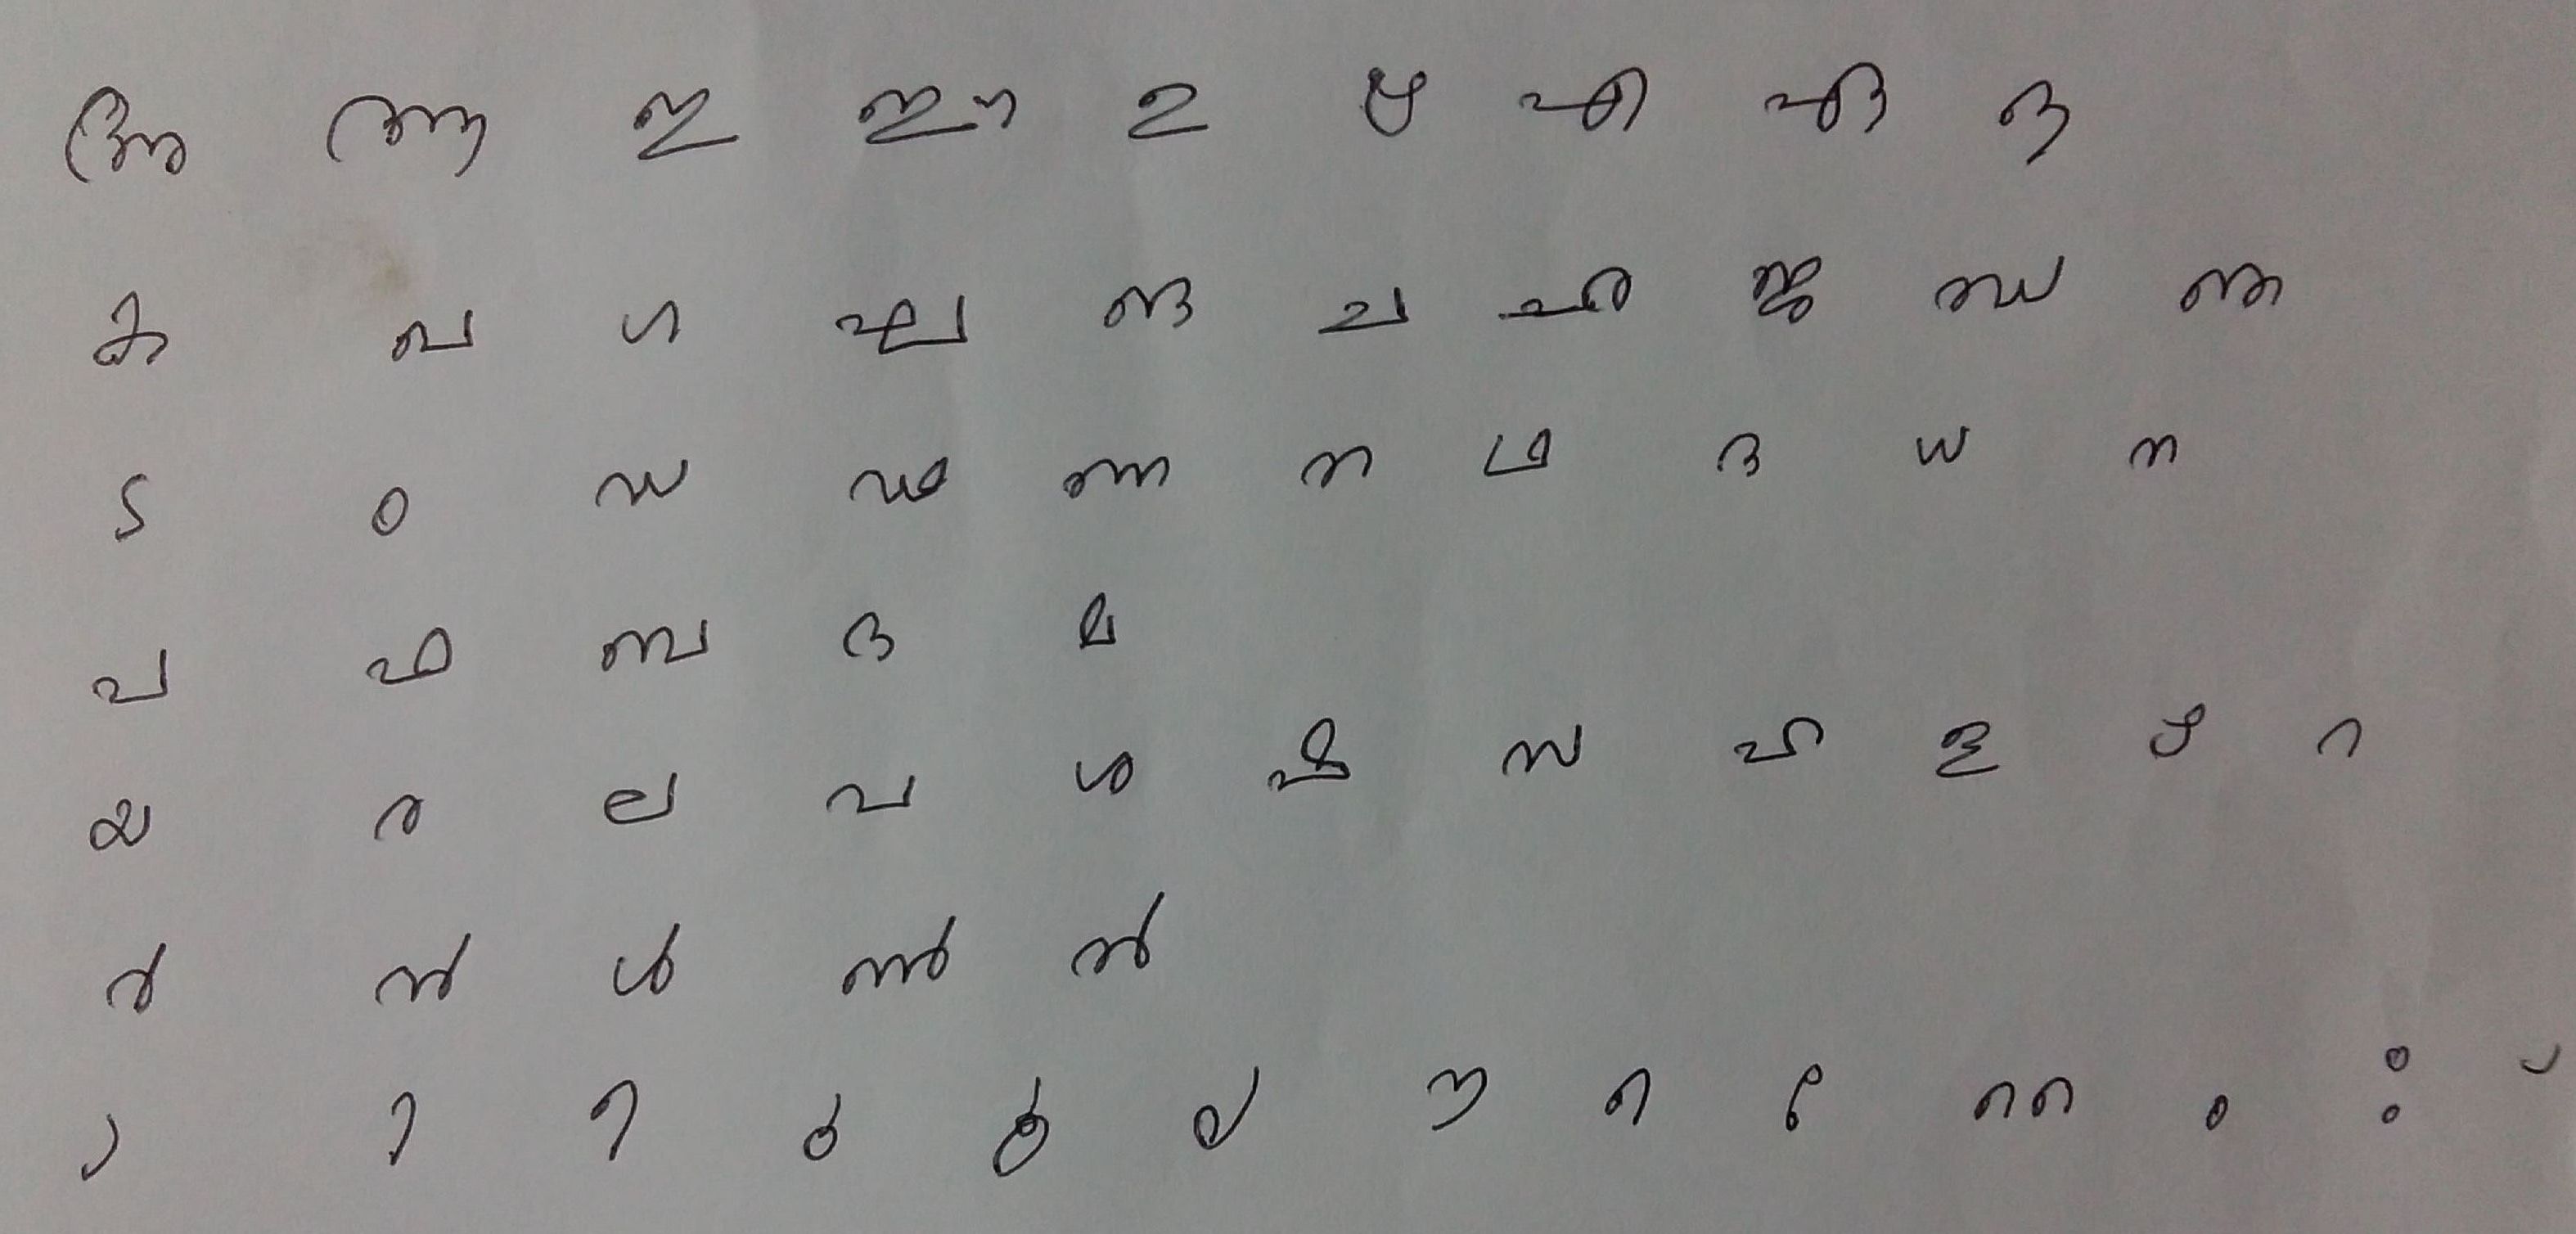 അ ആ ഇ ഈ ഉ ഋ എ ഏ ഒ
ക ഖ ഗ ഘ ങ ച ഛ ജ ഝ ഞ
ട ഠ ഡ ഢ ണ ത ഥ ദ ധ ന
പ ഫ ബ ഭ മ
യ ര ല വ ശ ഷ സ ഹ ള ഴ റ
ർ ൽ ൾ ൺ ൻ
ാ ി ീ ു ൂ ൃ ൗ െ േ ൈ ം ഃ ്